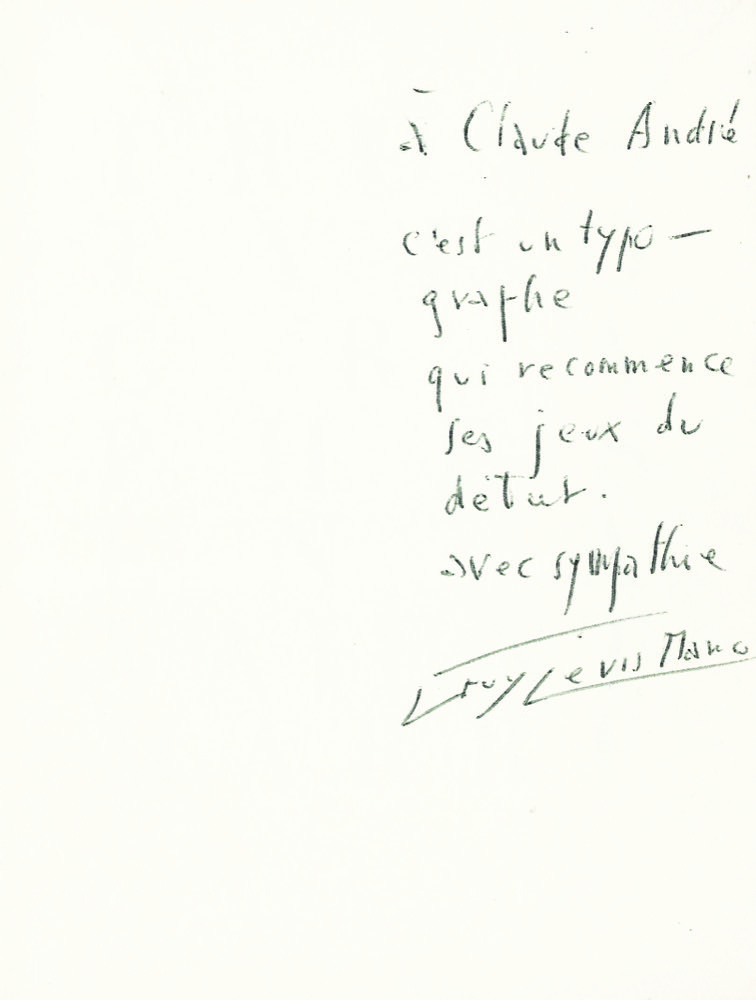 à Claude André
c'est un typo—
graphe
qui recommence
ses jeux du
début.
avec sympathie
Guy Lévis Mano